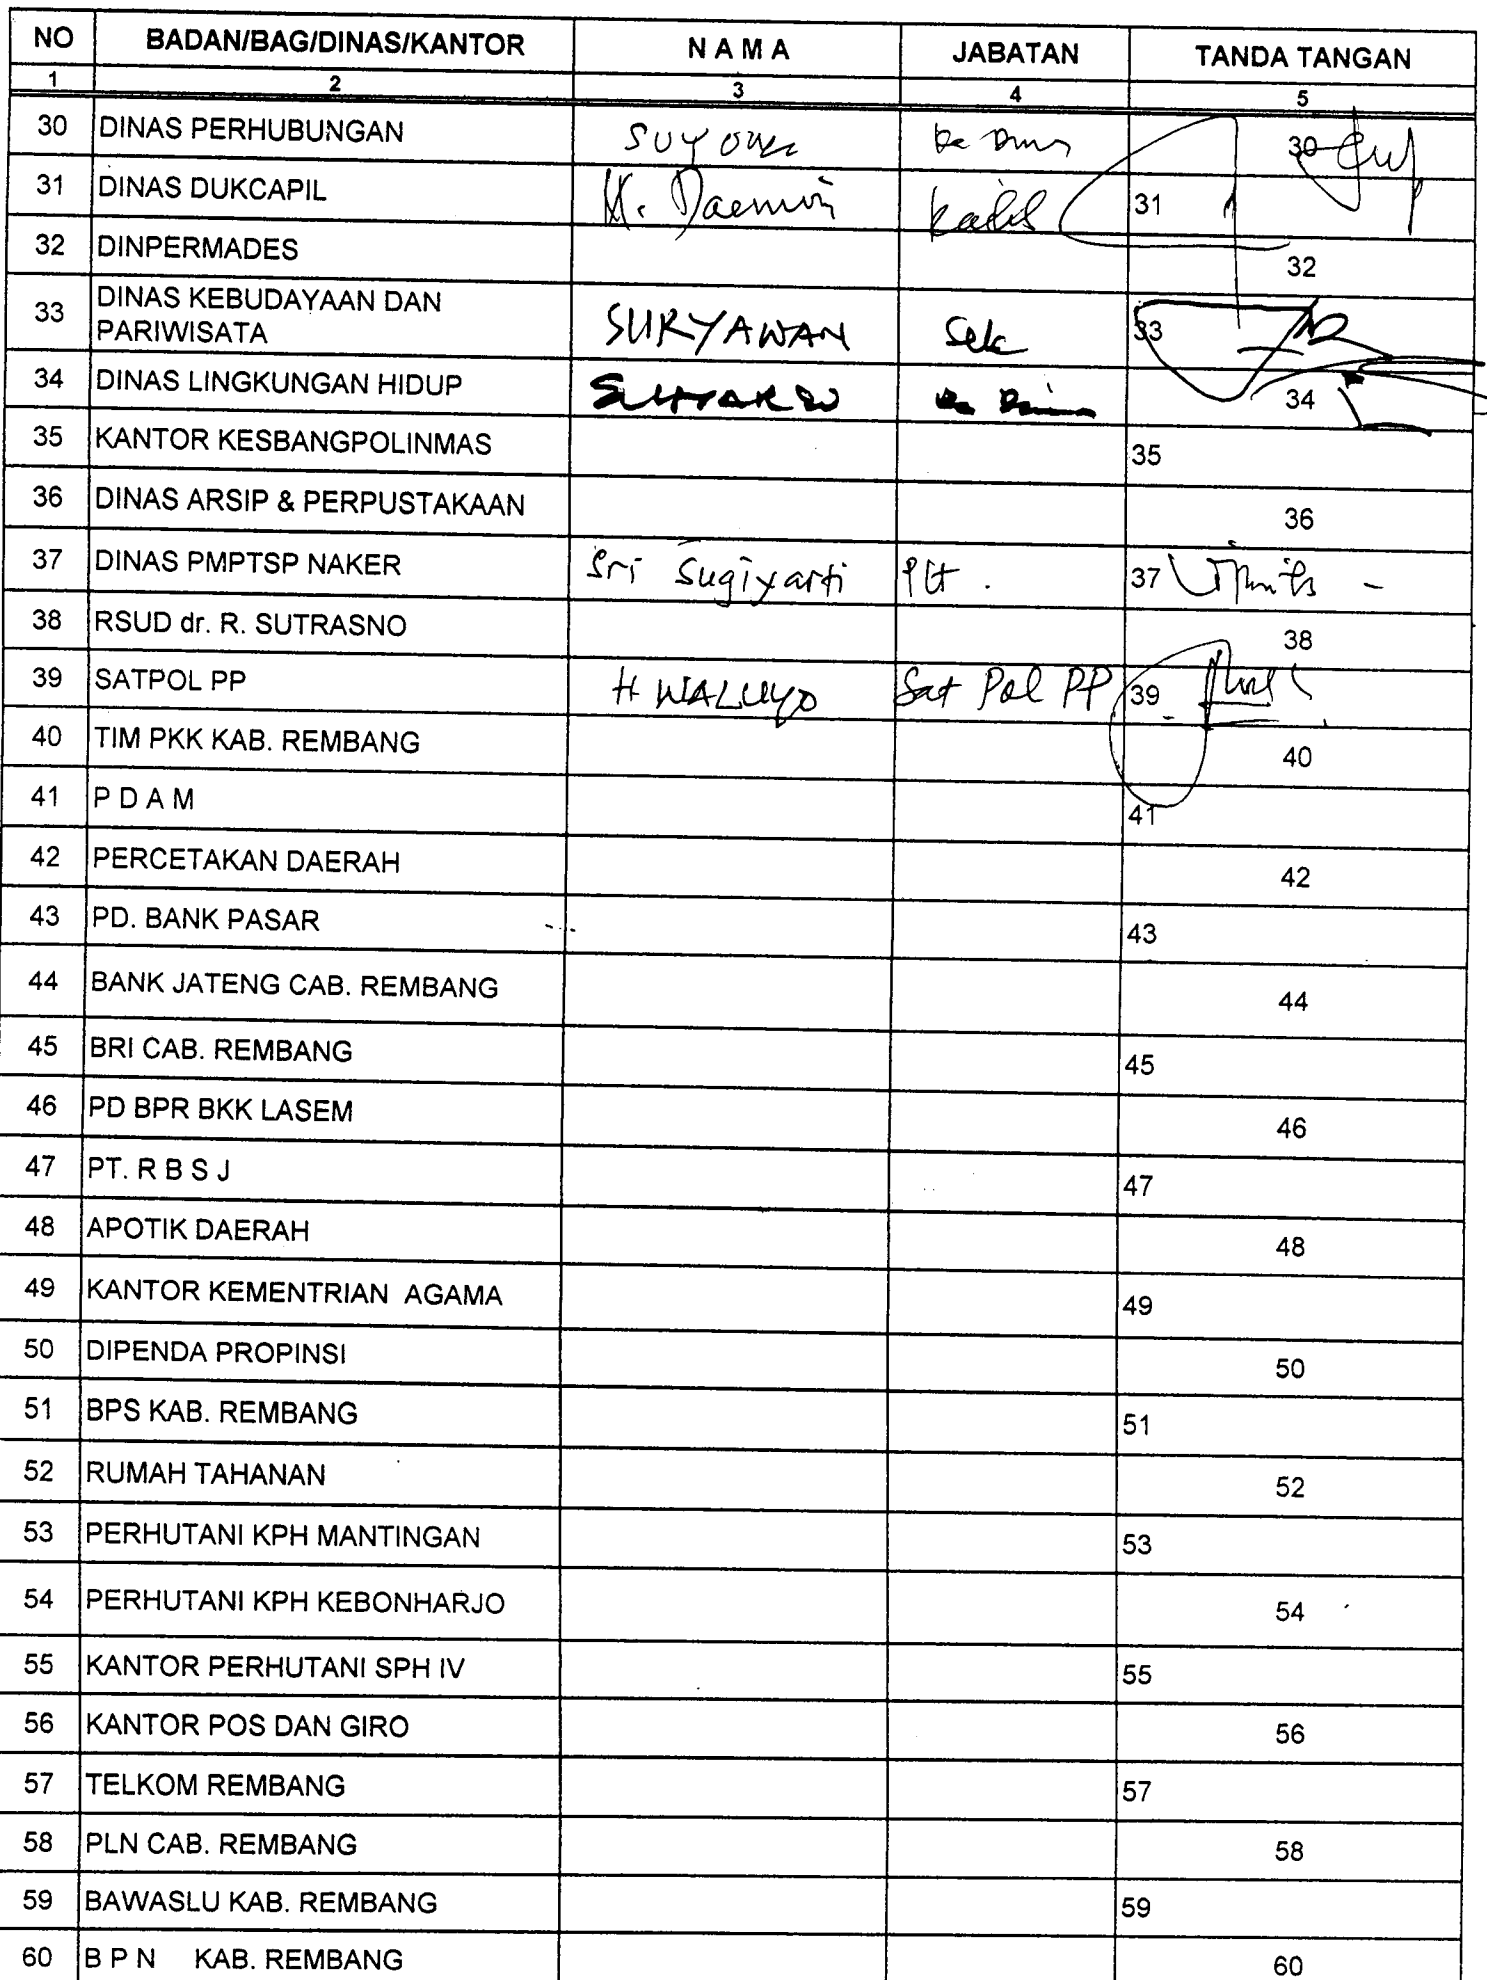 NO BADAN/BAG/DINAS/KANTOR N A M A JABATAN TANDA TANGAN
1 2 3 4 5
30 DINAS PERHUBUNGAN 30
31 DINAS DUKCAPIL 31
32 DINPERMADES 32
33 DINAS KEBUDAYAAN DAN
PARIWISATA SURYAWAN Sek 33
34 DINAS LINGKUNGAN HIDUP 34
35 KANTOR KESBANGPOLINMAS 35
36 DINAS ARSIP & PERPUSTAKAAN 36
37 DINAS PMPTSP NAKER Sri Sugiyarti Plt. 37
38 RSUD dr. R. SUTRASNO 38
39 SATPOL PP H WALUYO Sat Pol PP 39
40 TIM PKK KAB. REMBANG 40
41 P D A M 41
42 PERCETAKAN DAERAH 42
43 PD. BANK PASAR 43
44 BANK JATENG CAB. REMBANG 44
45 BRI CAB. REMBANG 45
46 PD BPR BKK LASEM 46
47 PT. R B S J 47
48 APOTIK DAERAH 48
49 KANTOR KEMENTRIAN AGAMA 49
50 DIPENDA PROPINSI 50
51 BPS KAB. REMBANG 51
52 RUMAH TAHANAN 52
53 PERHUTANI KPH MANTINGAN 53
54 PERHUTANI KPH KEBONHARJO 54
55 KANTOR PERHUTANI SPH IV 55
56 KANTOR POS DAN GIRO 56
57 TELKOM REMBANG 57
58 PLN CAB. REMBANG 58
59 BAWASLU KAB. REMBANG 59
60 B P N KAB. REMBANG 60